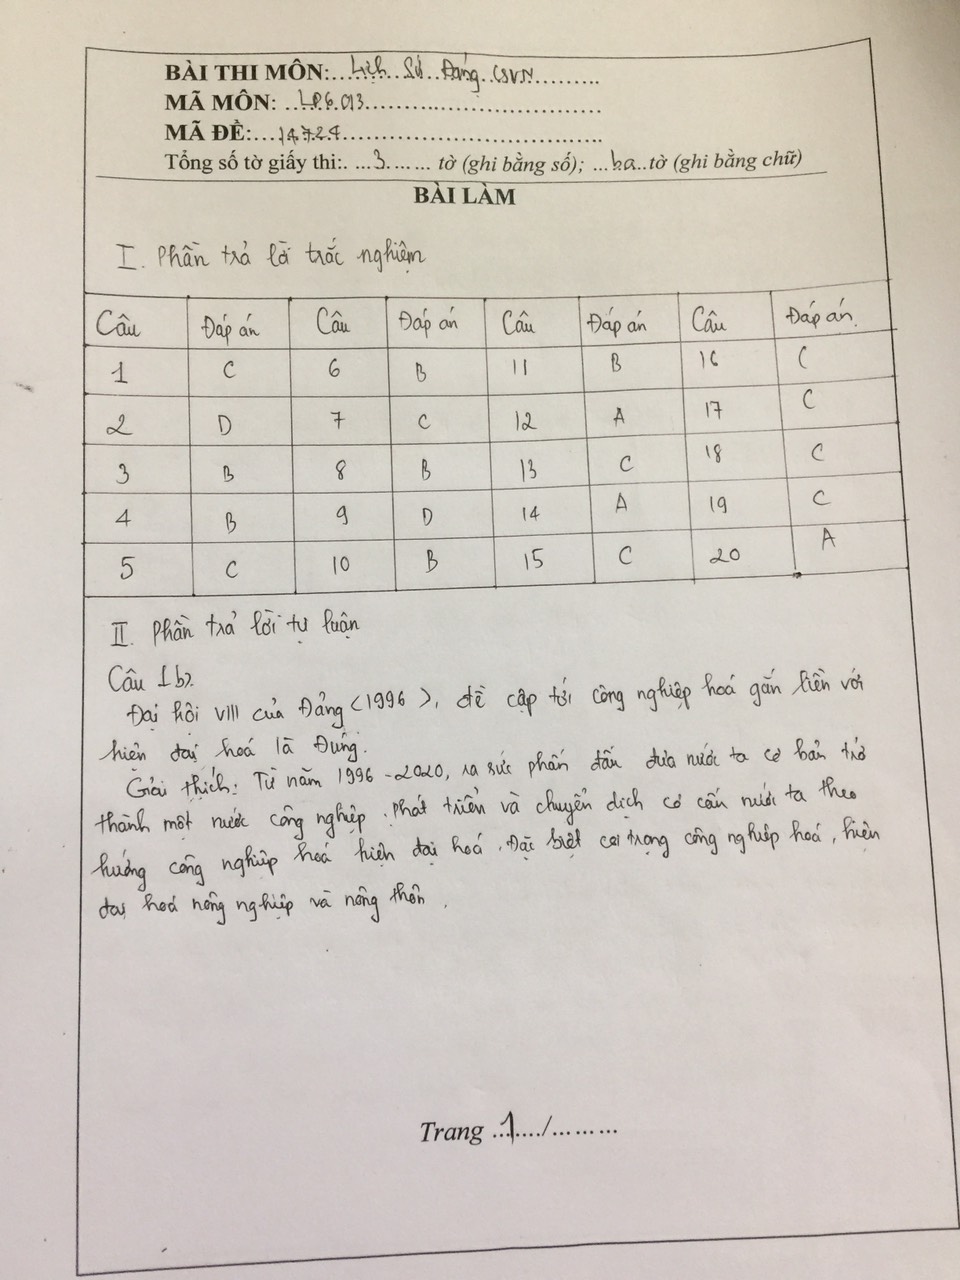 BÀI THI MÔN:...Lịch..Sử..Đảng..CSVN.........
MÃ MÔN: ..LPG.013...............................
MÃ ĐỀ:...14724.......................................
Tổng số tờ giấy thi:. ...3....... tờ (ghi bằng số); ...ba..tờ (ghi bằng chữ)
BÀI LÀM
I. Phần trả lời trắc nghiệm
Câu Đáp án Câu Đáp án Câu Đáp án Câu Đáp án.
1 C 6 B 11 B 16 C
2 D 7 C 12 A 17 C
3 B 8 B 13 C 18 C
4 B 9 D 14 A 19 C
5 C 10 B 15 C 20 A
II. Phần trả lời tự luận
Câu 1b)
Đại hội VIII của Đảng (1996), đề cập tới công nghiệp hoá gắn liền với
hiện đại hoá là Đúng.
Giải thích: Từ năm 1996-2020, ra sức phấn đấu đưa nước ta cơ bản trở
thành một nước công nghiệp. Phát triển và chuyển dịch cơ cấu nước ta theo
hướng công nghiệp hoá hiện đại hoá. Đặc biệt coi trọng công nghiệp hoá, hiện
đại hoá nông nghiệp và nông thôn.
Trang ..1..../.........